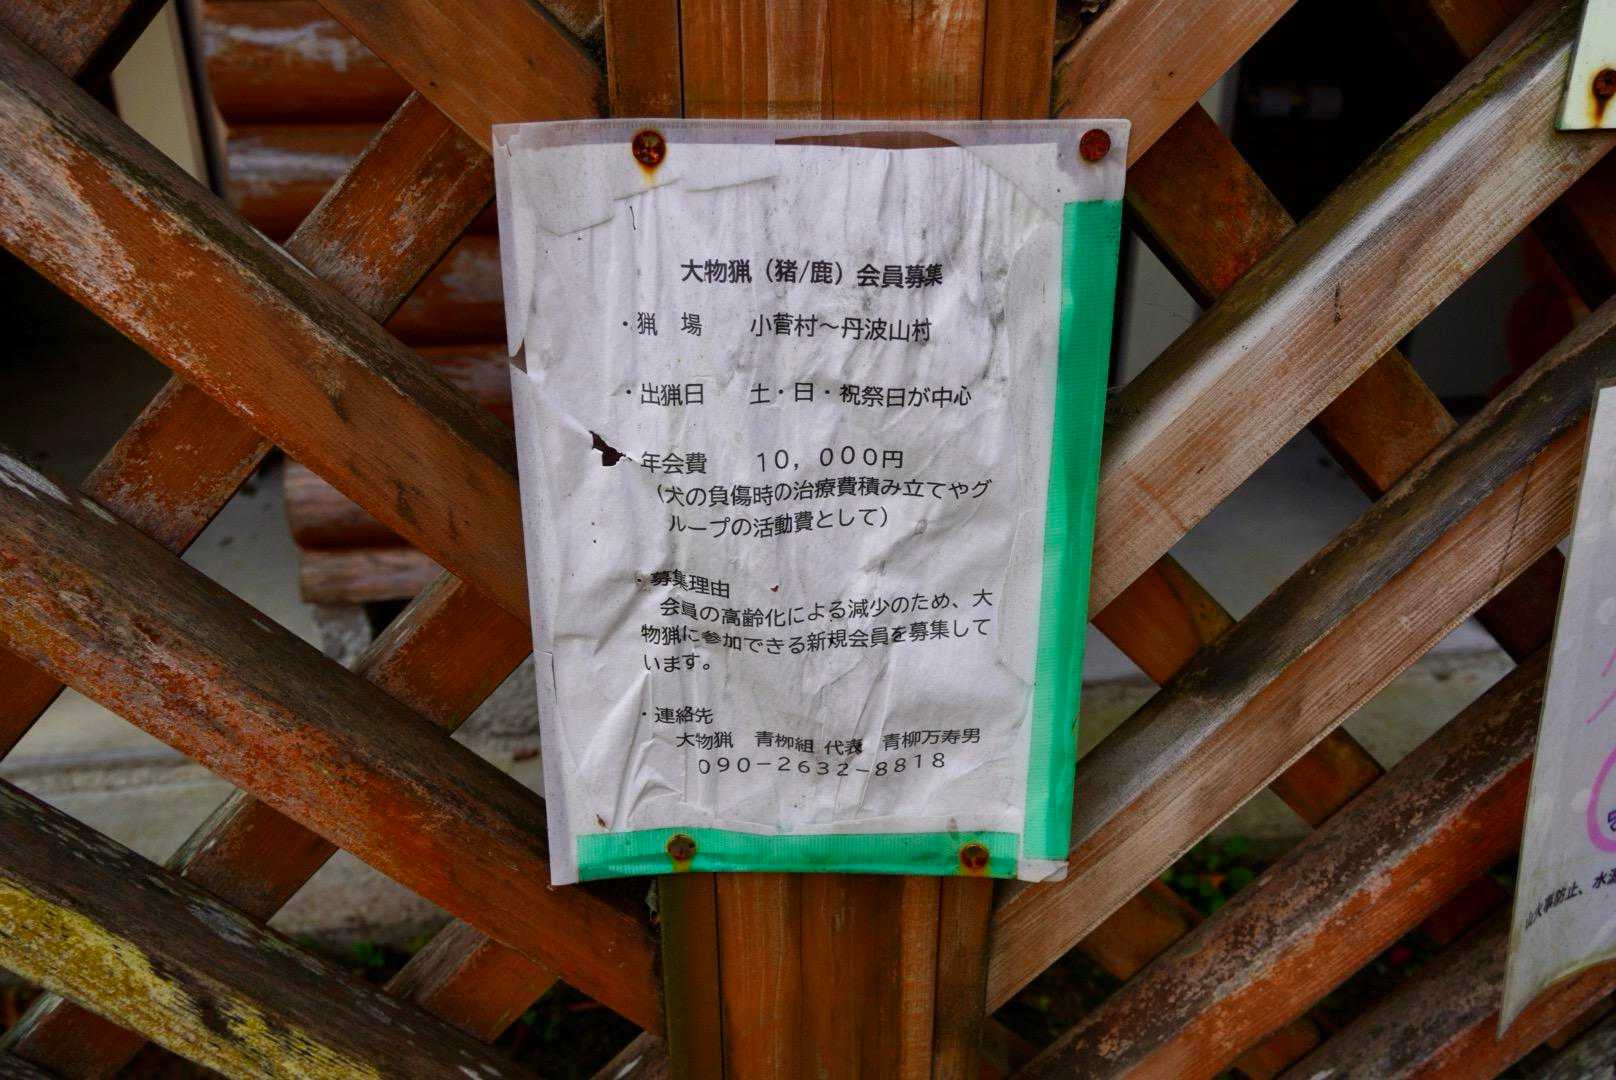 大物猟（猪/鹿）会員募集
・猟　場　　小菅村～丹波山村
・出猟日　　土・日・祝祭日が中心
年会費　　１０，０００円
（犬の負傷時の治療費積み立てやグ
ループの活動費として）
・募集理由
会員の高齢化による減少のため、大
物猟に参加できる新規会員を募集して
います。
・連絡先
大物猟　青柳組 代表　青柳万寿男
０９０－２６３２－８８１８
山火事防止、水源